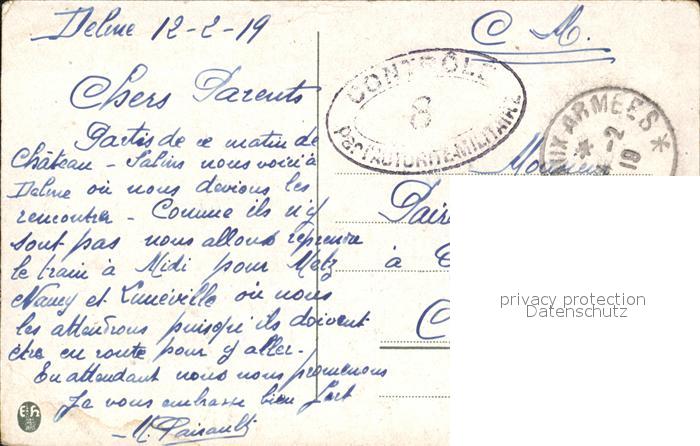 Delme 12-2-19
C M.
CONTRÔLE
8
par l'AUTORITÉ MILITAIRE
AUX ARMÉES
-2
19
Chers Parents
Partis de ce matin de
Château-Salins nous voici à
Delme où nous devions les
rencontrer - Comme ils n'y
sont pas nous allons reprendre
le train à Midi pour Metz
Nancy et Lunéville où nous
les attendrons puisqu'ils doivent
être en route pour y aller.
En attendant nous nous promenons
Je vous embrasse bien fort
Monsieur
à
C
privacy protection
Datenschutz